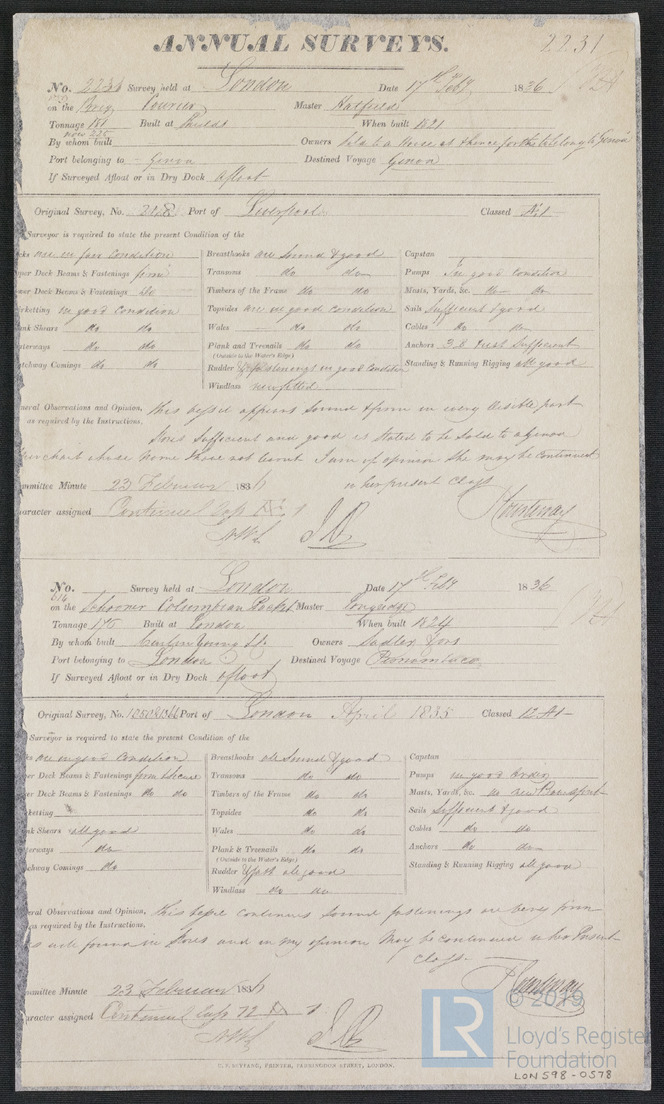 ANNUAL SURVEYS. 2231
No. 2231 Survey held at London Date 17th Feby 1836
on the Brig Courier Master Hatfield
Tonnage 181 Built at Shields When built 1821
New 225
By whom built Owners Sold to a House at thence for the to belong to Genoa
Port belonging to Genoa Destined Voyage Genoa
If Surveyed Afloat or in Dry Dock afloat
Original Survey, No. Port of Liverpool Classed A.1
Surveyor is required to state the present Condition of the
are in fair Condition Breasthooks are Sound & good Capstan
per Deck Beams & Fastenings firm Transoms do do Pumps In good condition
wer Deck Beams & Fastenings do Timbers of the Frame do do Masts, Yards, &c. do do
rketting in good condition Topsides are in good condition Sails Sufficient & good
nk Shears do do Wales do do Cables do do
terways do do Plank and Treenails do do Anchors 3 B Just Sufficient
(Outside to the Water's Edge)
tchway Comings do do Rudder & fastenings in good Condition Standing & Running Rigging all good
Windlass new fitted
neral Observations and Opinion, This vessel appears Sound & firm in every visible part
as required by the Instructions.
Stores Sufficient and good is Stated to be Sold to a Genoa
Merchant whose name I have not learnt I am of opinion She may be Continued
in her present Class
mmittee Minute 23 February 1836
aracter assigned Continued Class A 1 Courtenay
No. Survey held at London Date 17th Feby 1836
on the Schooner Columbian Packet Master Longridge
Tonnage 175 Built at London When built 1824
By whom built Curling Young & Co Owners Sadler & Sons
Port belonging to London Destined Voyage Pernambuco
If Surveyed Afloat or in Dry Dock afloat
Original Survey, No. Port of London April 1835 Classed 12 A1
Surveyor is required to state the present Condition of the
are in good Condition Breasthooks are Sound & good Capstan
per Deck Beams & Fastenings firm & secure Transoms do do Pumps in good Order
er Deck Beams & Fastenings do do Timbers of the Frame do do Masts, Yards, &c. do new Bowsprit
rketting Topsides do do Sails Sufficient & good
nk Shears all good Wales do do Cables do do
erways do Plank & Treenails do do Anchors do do
(Outside to the Water's Edge)
chway Comings do Rudder all good Standing & Running Rigging all good
Windlass do do
eral Observations and Opinion, This Vessel Continues Sound fastenings are very firm
as required by the Instructions.
is well found in Stores and in my opinion May be Continued in her Present
Class
mmittee Minute 23 February 1836 Courtenay
aracter assigned Continued Class 12 A 1
© 2019
LR
Lloyd's Register
Foundation
PRINTER, FARRINGDON STREET, LONDON.
LON598-0578